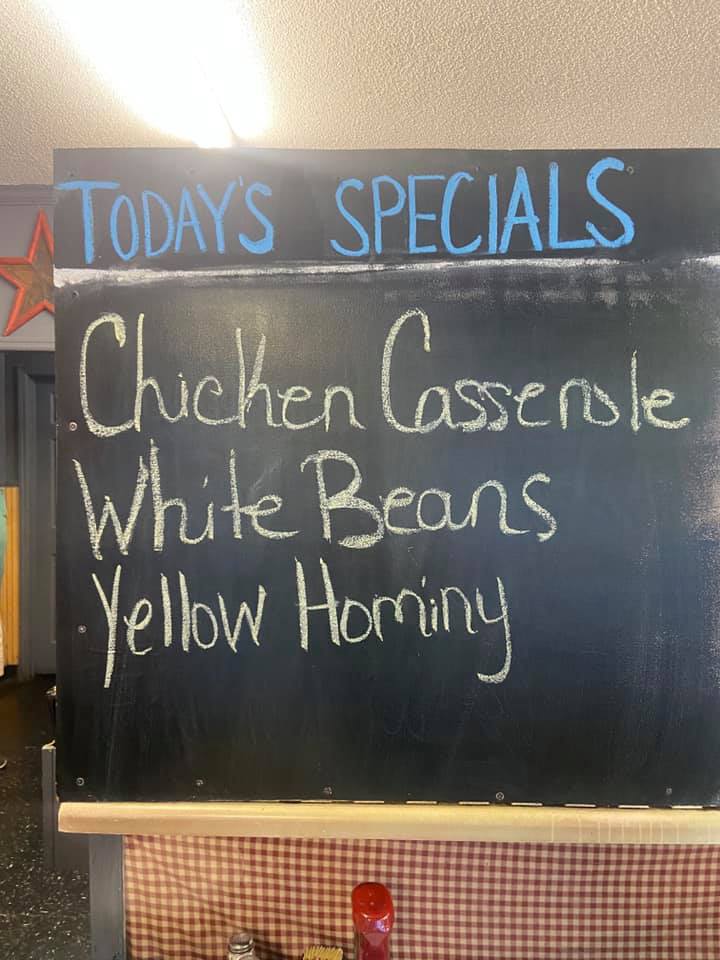 TODAY'S SPECIALS
Chicken Casserole
White Beans
Yellow Hominy